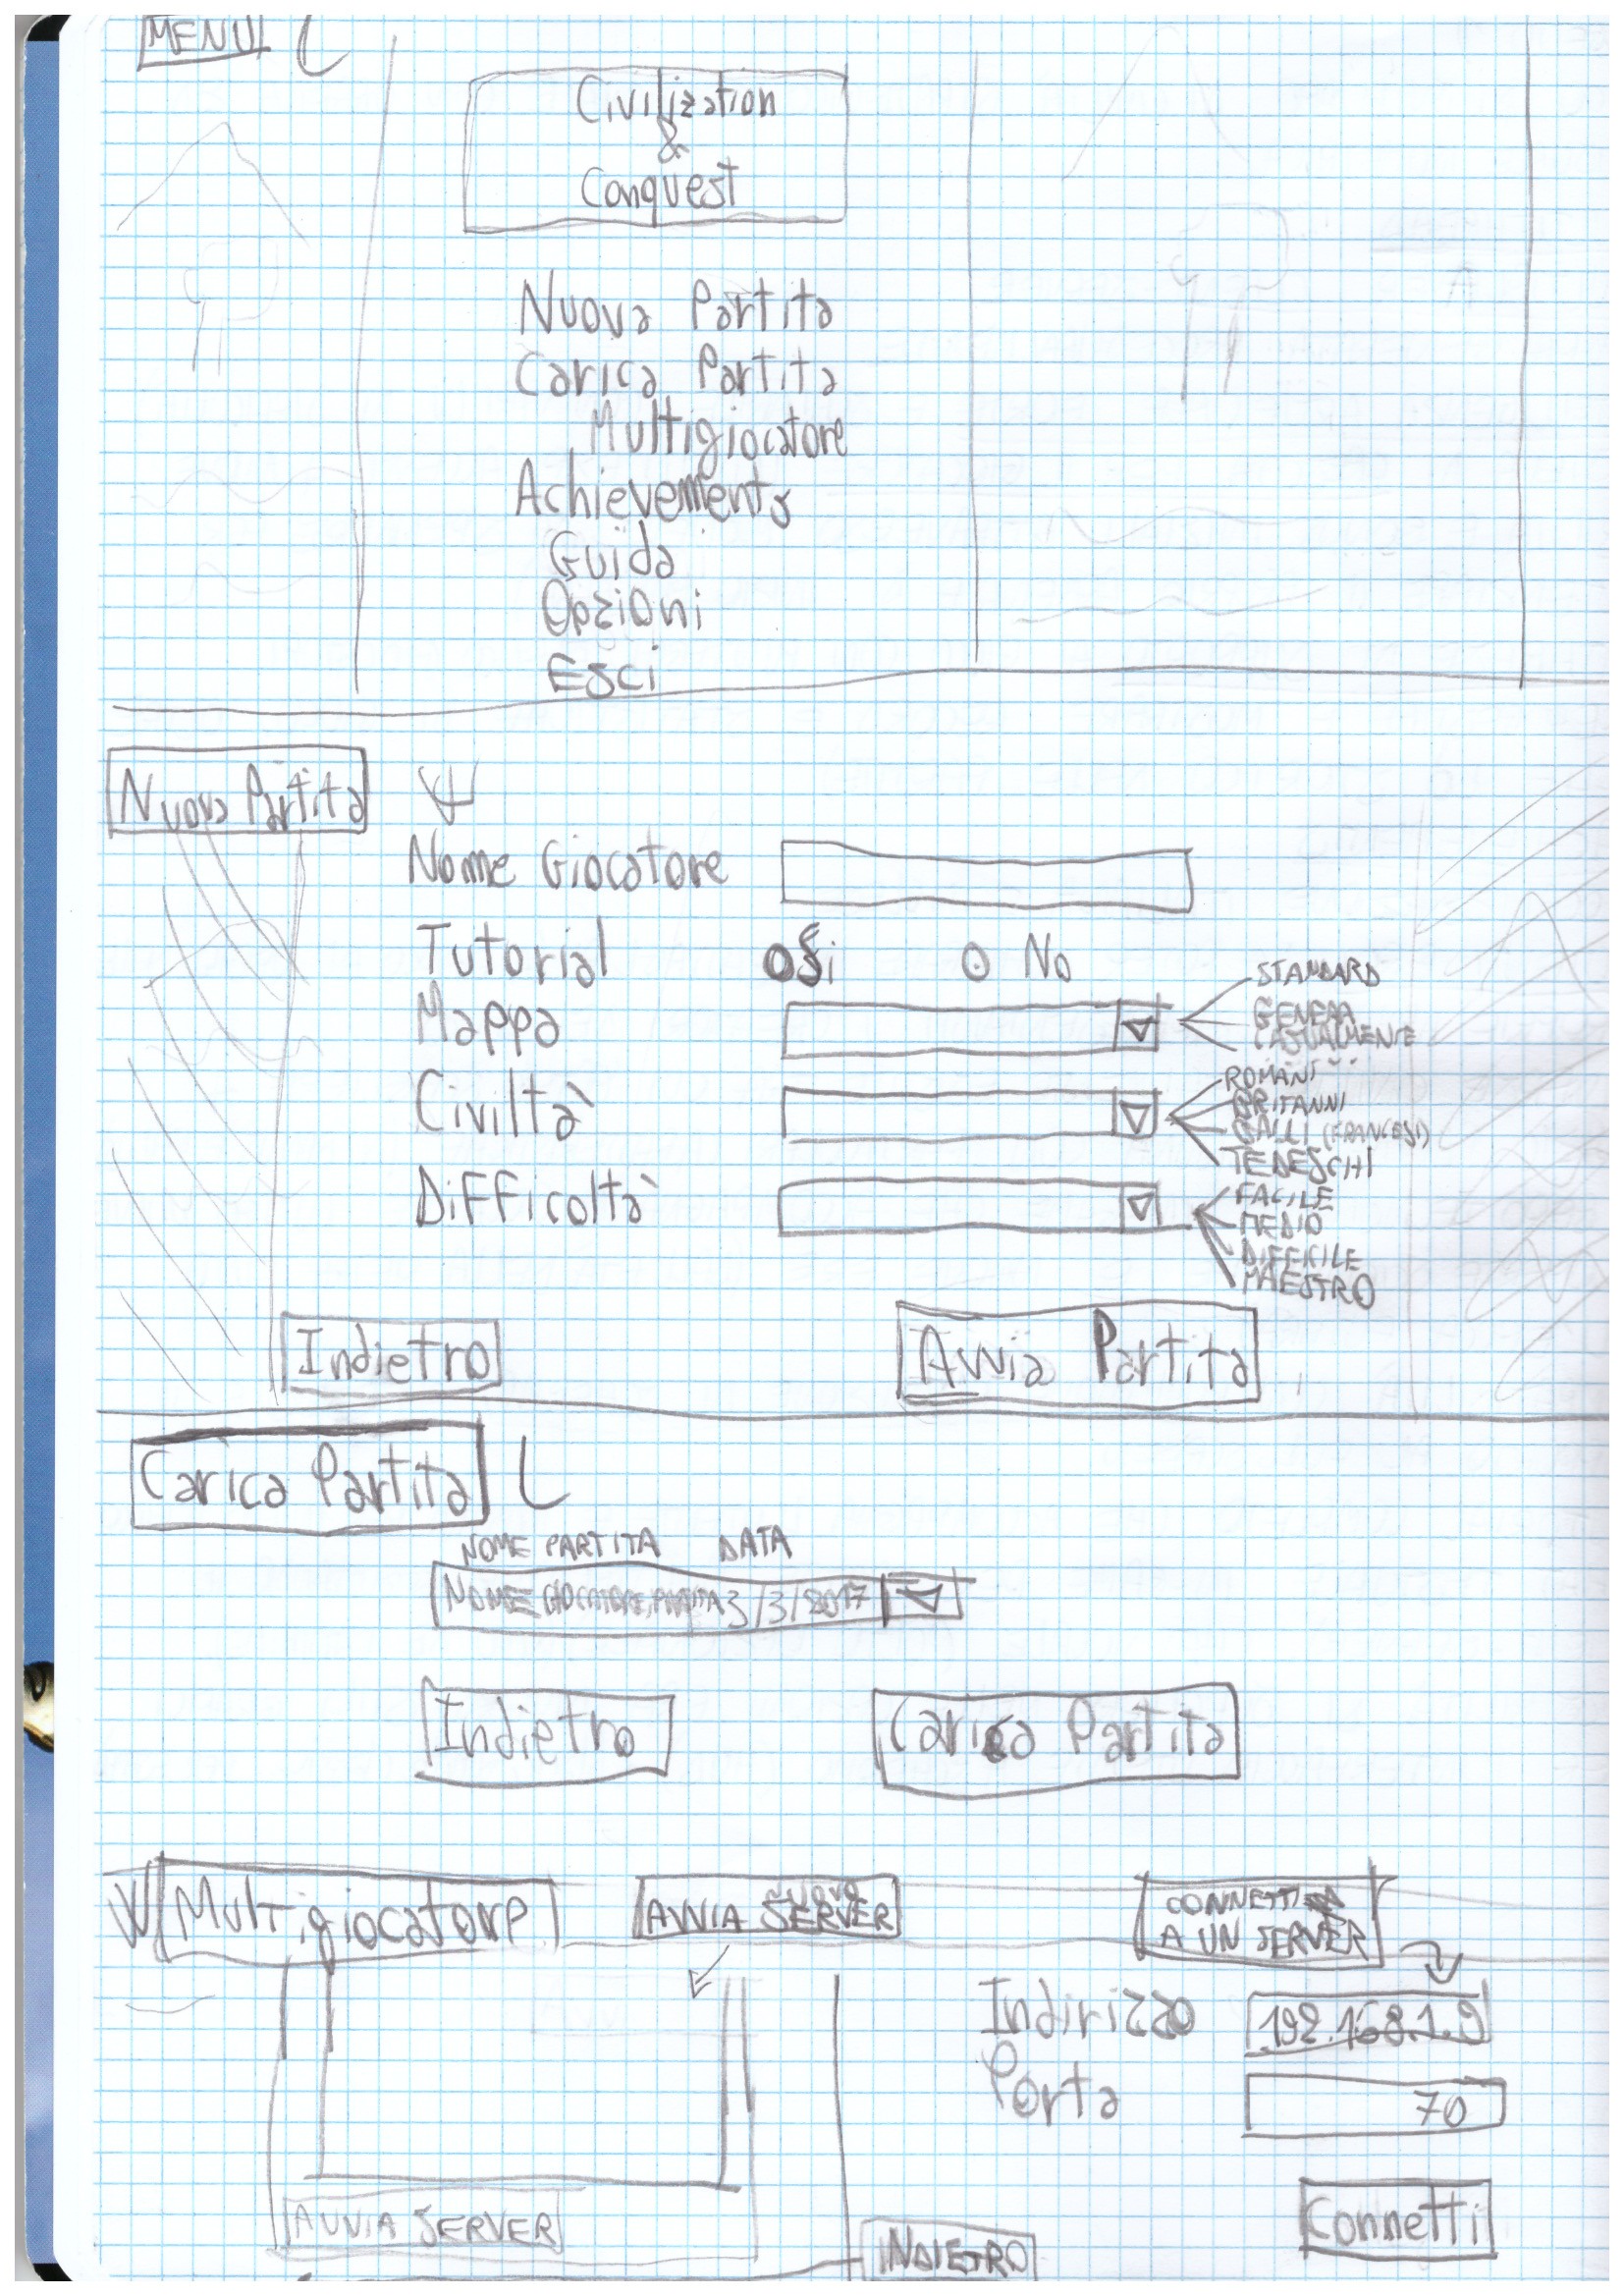 MENU
Civilization
&
Conquest
Nuova Partita
Carica Partita
Multigiocatore
Achievements
Guida
Opzioni
Esci
Nuova Partita
Nome Giocatore
Tutorial Si No
Mappa
STANDARD
GENERA
CASUALMENTE
Civiltà
ROMANI
BRITANNI
GALLI (FRANCESI)
TEDESCHI
Difficoltà
FACILE
MEDIO
DIFFICILE
MAESTRO
Indietro Avvia Partita
Carica Partita
NOME PARTITA DATA
NOME GIOCATORE, PARTITA 3/3/2017
Indietro Carica Partita
Multigiocatore
AVVIA NUOVO SERVER
CONNETTI
A UN SERVER
Indirizzo 192.168.1.9
Porta 70
AVVIA SERVER
INDIETRO
Connetti